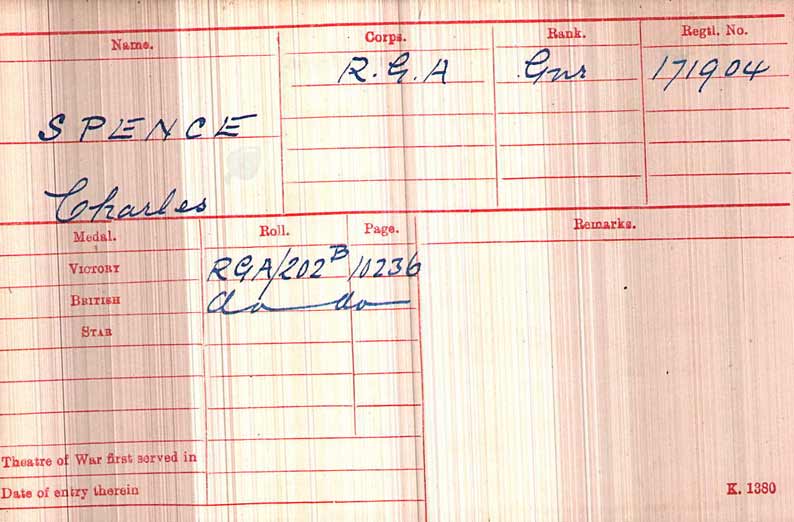 Name. Corps. Rank. Regtl. No.
R.G.A Gnr 171904
SPENCE
Charles
Medal. Roll. Page. Remarks.
VICTORY RGA/202B 10236
BRITISH do do
STAR
Theatre of War first served in
Date of entry therein
K. 1380